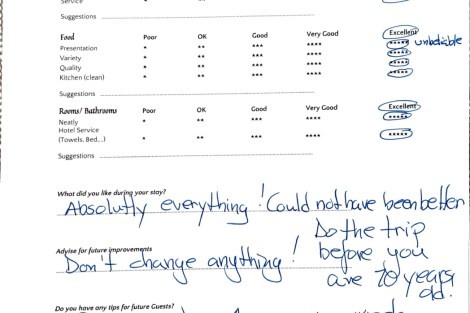 Service
Suggestions
Food Poor OK Good Very Good Excellent
Presentation * ** *** **** ***** unbeliable
Variety * ** *** **** *****
Quality * ** *** **** *****
Kitchen (clean) * ** *** **** *****
Suggestions
Rooms/ Bathrooms Poor OK Good Very Good Excellent
Neatly * ** *** **** *****
Hotel Service
(Towels, Bed...) * ** *** **** *****
Suggestions
What did you like during your stay?
Absolutly everything! Could not have been better
Advise for future improvements
Don't change anything!
Do the trip
before you
are 70 years
old.
Do you have any tips for future Guests?